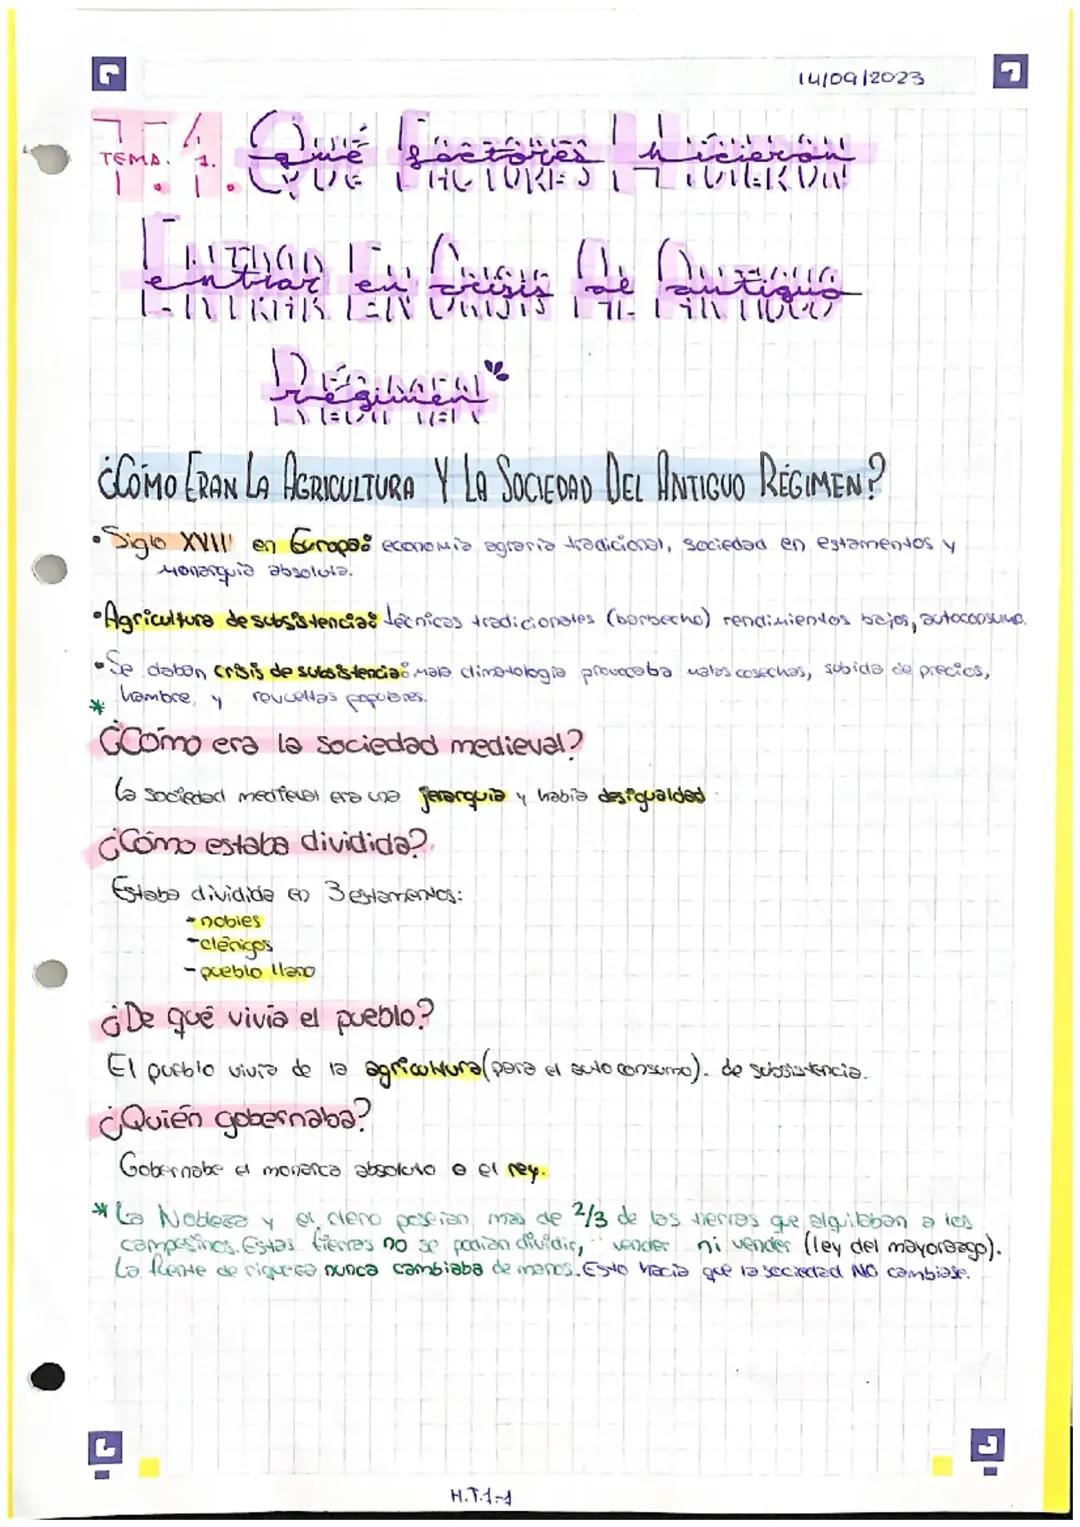 14/09/2023
TEMA. 1. Qué factores hicieron
entrar en crisis al antiguo
régimen
¿CÓMO ERAN LA AGRICULTURA Y LA SOCIEDAD DEL ANTIGUO RÉGIMEN?
• Siglo XVIII en Europa: economía agraria tradicional, sociedad en estamentos y
monarquía absoluta.
• Agricultura de subsistencia: técnicas tradicionales (barbecho) rendimientos bajos, autoconsumo.
• Se daban crisis de subsistencia: mala climatología provocaba malas cosechas, subida de precios,
hambre, y revueltas populares.
*
¿Cómo era la sociedad medieval?
La sociedad medieval era una jerarquía y había desigualdad.
¿Cómo estaba dividida?
Estaba dividida en 3 estamentos:
- nobles
- clérigos
- pueblo llano
¿De qué vivía el pueblo?
El pueblo vivía de la agricultura (para el autoconsumo). de subsistencia.
¿Quién gobernaba?
Gobernaba el monarca absoluto o el rey.
* La Nobleza y el clero poseían más de 2/3 de las tierras que alquilaban a los
campesinos. Estas tierras no se podían dividir, vender ni vender (ley del mayorazgo).
La fuente de riqueza nunca cambiaba de manos. Esto hacía que la sociedad NO cambiase.
H.T.1-1